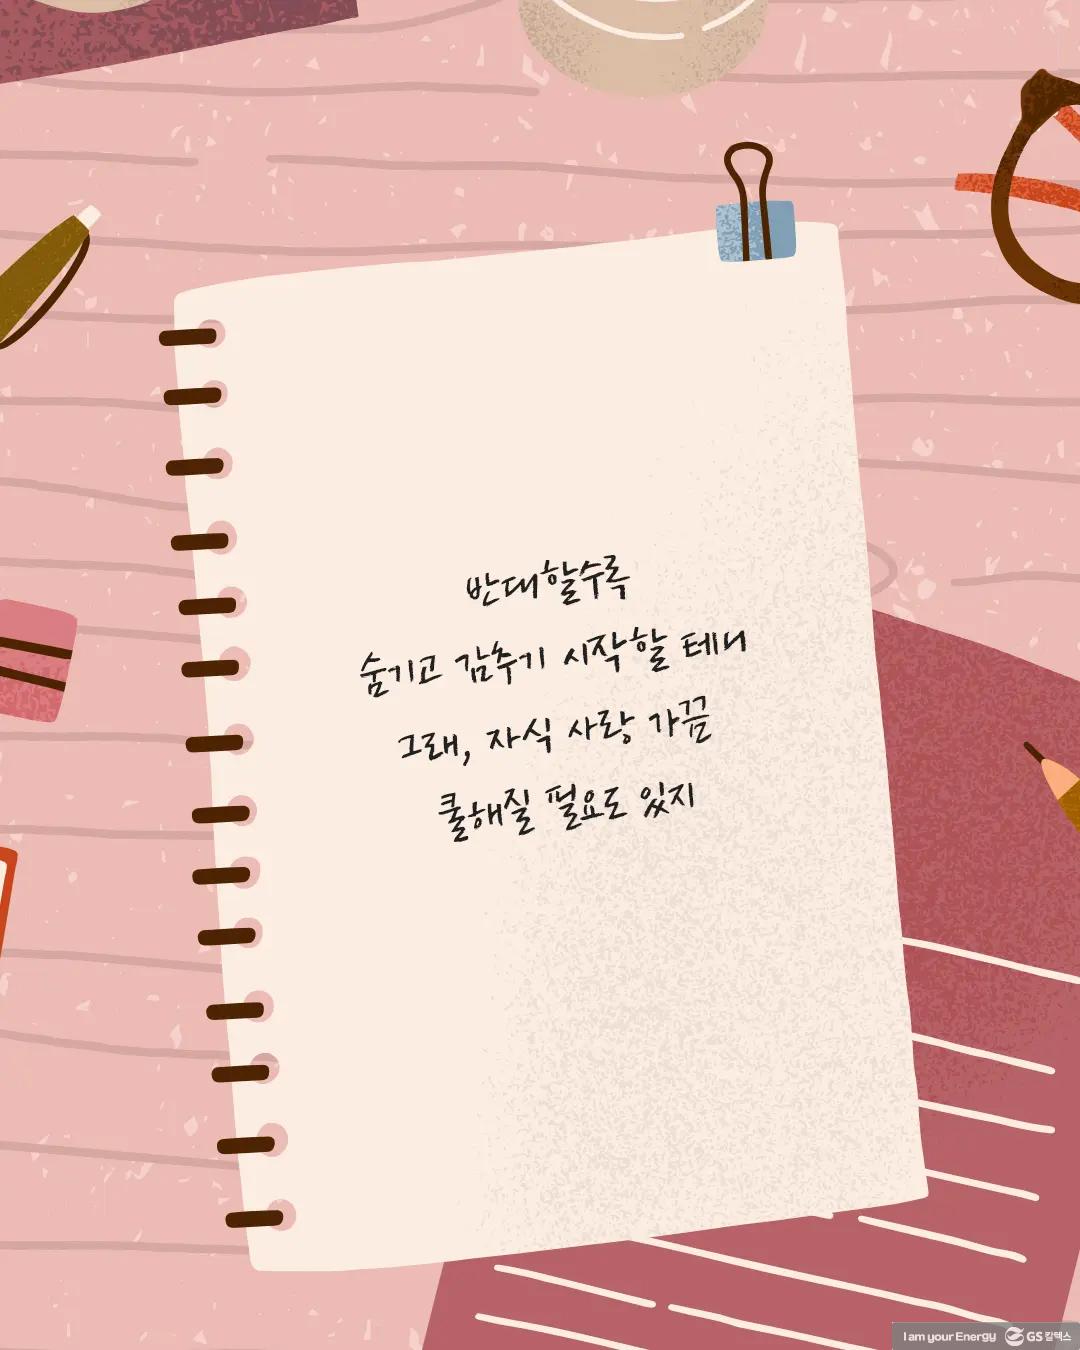 반대할수록
숨기고 감추기 시작할 테니
그래, 자식 사랑 가끔
쿨해질 필요도 있지
I am your Energy GS칼텍스